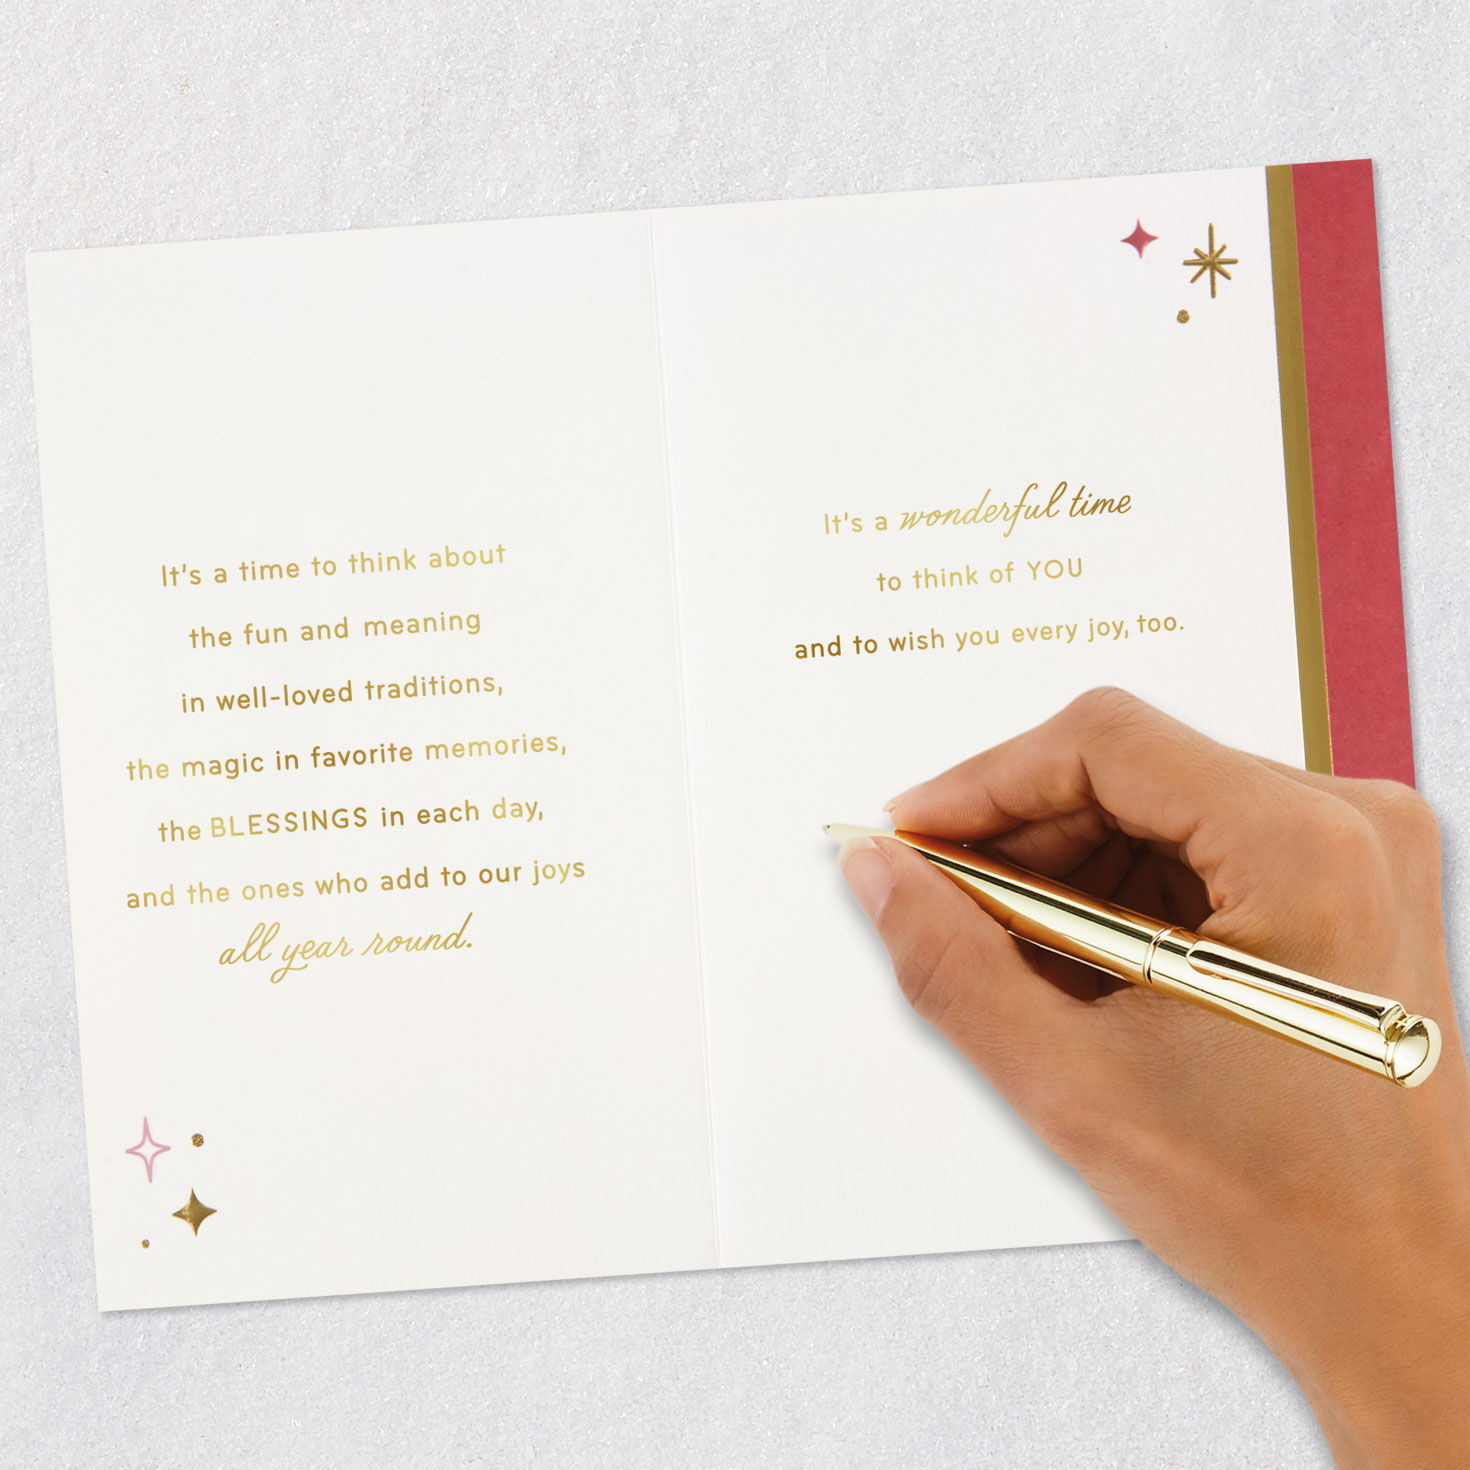 It's a time to think about
the fun and meaning
in well-loved traditions,
the magic in favorite memories,
the BLESSINGS in each day,
and the ones who add to our joys
all year round.
It's a wonderful time
to think of YOU
and to wish you every joy, too.